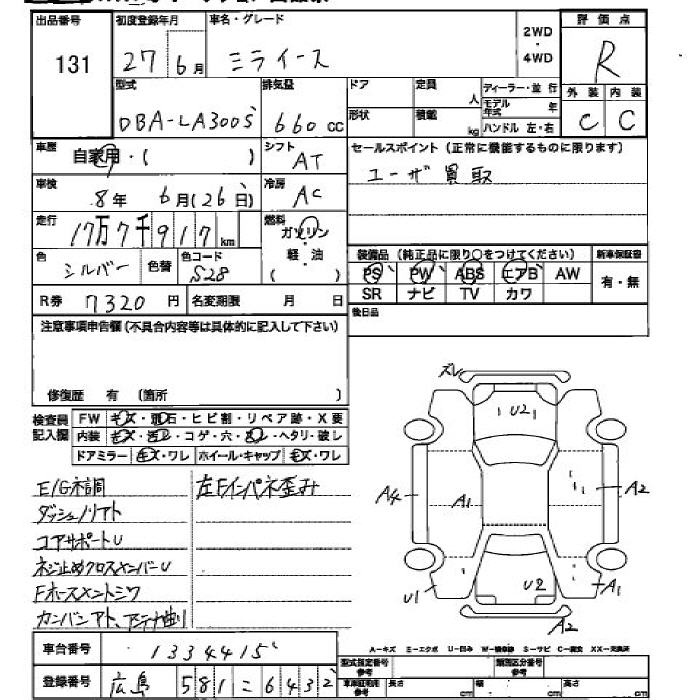 出品番号 131
初度登録年月 27 6月
車名・グレード ミライース
2WD・4WD
評価点 R
外装 C 内装 C
型式 DBA-LA300S
排気量 660 CC
ドア
形状
定員 人
積載 kg
ディーラー・並行
モデル年式 年
ハンドル 左・右
車歴 自家用・( )
シフト AT
セールスポイント (正常に機能するものに限ります)
ユーザ買取
車検 8年 6月(26日)
冷房 AC
走行 17万7千917km
燃料 ガソリン・軽・油 ( )
色 シルバー 色替
色コード S28
装備品 (純正品に限り○をつけてください)
新車保証書 有・無
PS PW ABS エアB AW
SR ナビ TV カワ
R券 7320円
名変期限 月 日
後日品
注意事項申告欄(不具合内容等は具体的に記入して下さい)
修復歴 有 (箇所 )
検査員記入欄
FW キズ・飛石・ヒビ割・リペア跡・X要
内装 キズ・汚レ・コゲ・穴・ヘタリ・破レ
ドアミラー キズ・ワレ ホイール・キャップ キズ・ワレ
E/G不調 左Fインパネ歪み
コアサポートU
ネジ止めクロスメンバーU
カンバンアト、アンテナ曲り
ズレ
U2
A4 A1 A2
U1 U2 A1
A2
A-キズ E-エクボ U-凹み W-補修跡 S-サビ C-腐食 XX-交換済
車台番号 1334415
登録番号 広島 581 こ 6432
型式指定番号 類別区分番号
車車証明用参考 長さ cm 幅 cm 高さ cm